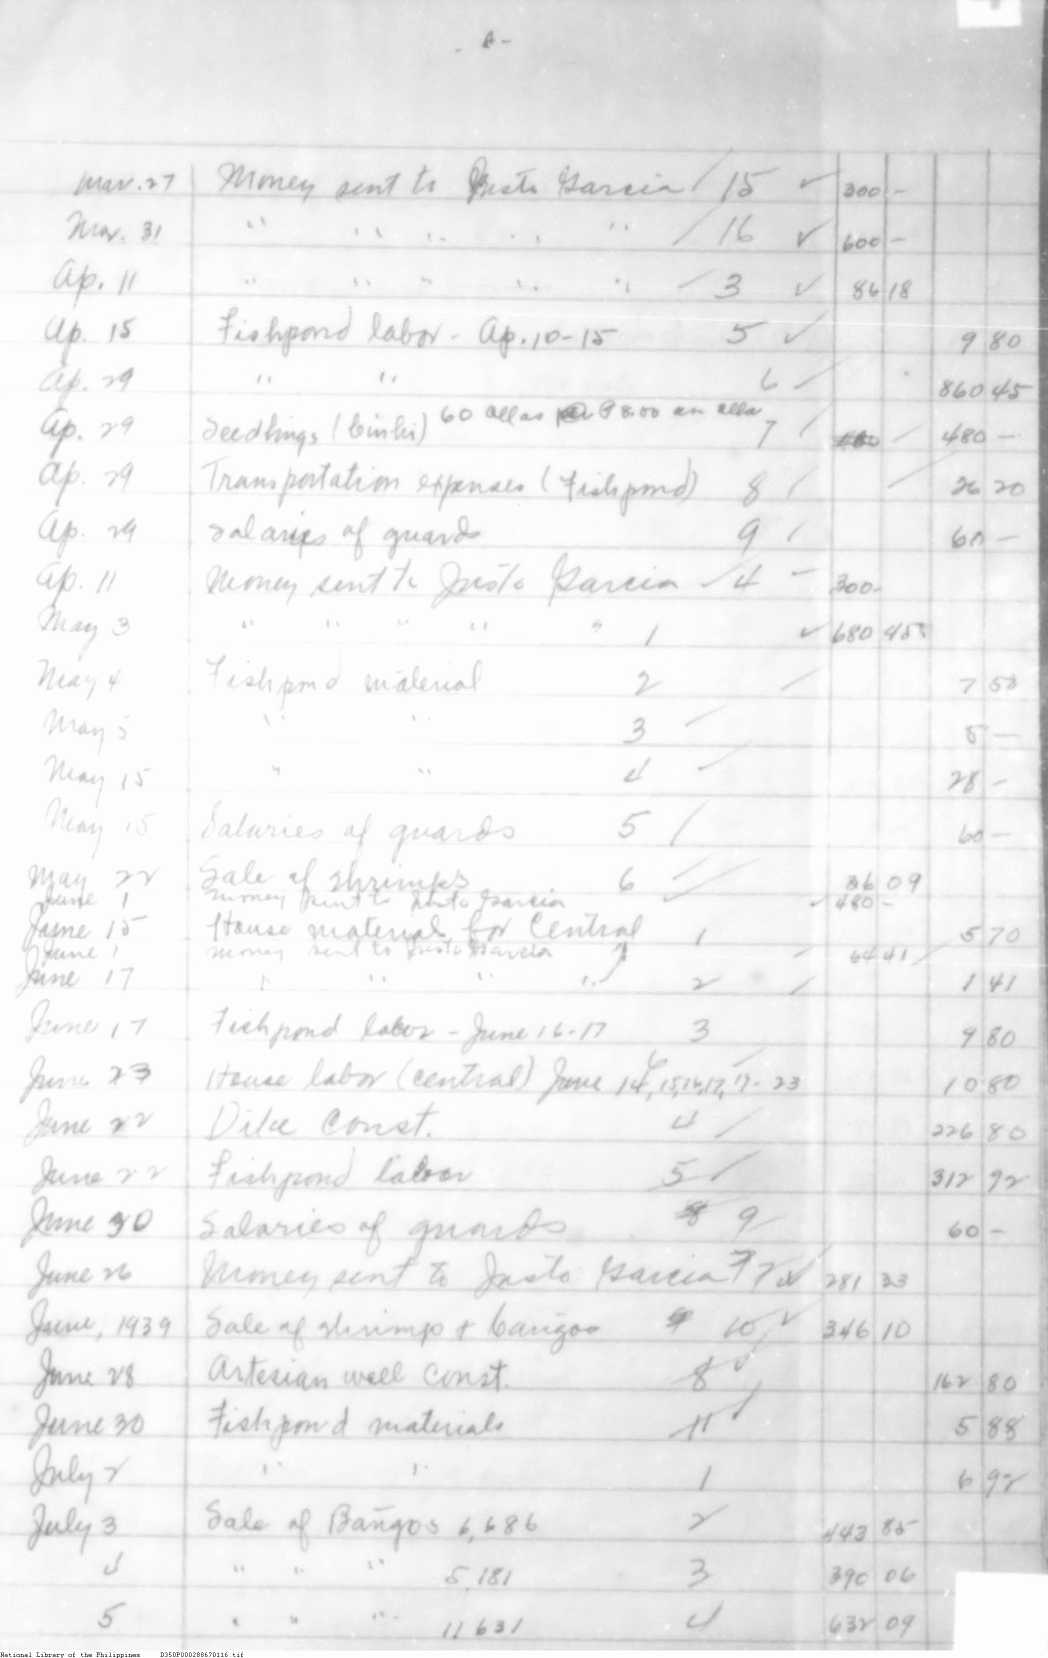 - A -
Mar. 27 Money sent to Justo Garcia / 15 ✓ 300 -
Mar. 31 " " " " " / 16 ✓ 600 -
Ap. 11 " " " " " / 3 ✓ 86 18
Ap. 15 Fishpond labor - Ap. 10-15 5 ✓ 9 80
Ap. 29 " " 6 / 860 45
Ap. 29 Seedlings (binhi) 60 ollas @ ₱8.00 an olla 7 / 480 -
Ap. 29 Transportation expenses (Fishpond) 8 / 26 20
Ap. 29 Salaries of guards 9 / 60 -
Ap. 11 Money sent to Justo Garcia / 4 - 300-
May 3 " " " " " 1 ✓ 680 45
May 4 Fishpond material 2 / 7 50
May 5 " " 3 / 5 -
May 15 " " 4 / 28 -
May 15 Salaries of guards 5 / 60 -
May 22 Sale of shrimps 6 / 36 09
June 1 Money sent to Justo Garcia ✓ 480 -
June 15 House material for Central 1 5 70
June 1 money sent to Justo Garcia / 64 41 /
June 17 " " " " 2 / 1 41
June 17 Fishpond labor - June 16-17 3 9 80
June 23 House labor (central) June 14, 15, 16, 17, 19-23 6 / 10 80
June 22 Dike Const. 4 / 226 80
June 22 Fishpond labor 5 / 312 92
June 30 Salaries of guards 9 60 -
June 26 Money sent to Justo Garcia 7 ✓ 281 33
June, 1939 Sale of shrimps + bangos 10 ✓ 346 10
June 28 Artesian well Const. 8 ✓ 162 80
June 30 Fishpond materials 11 / 5 88
July 2 " " 1 6 92
July 3 Sale of Bañgos 6,686 2 443 85
4 " " " 5,181 3 390 06
5 " " " 11631 4 632 09
National Library of the Philippines D350P000288670116.tif